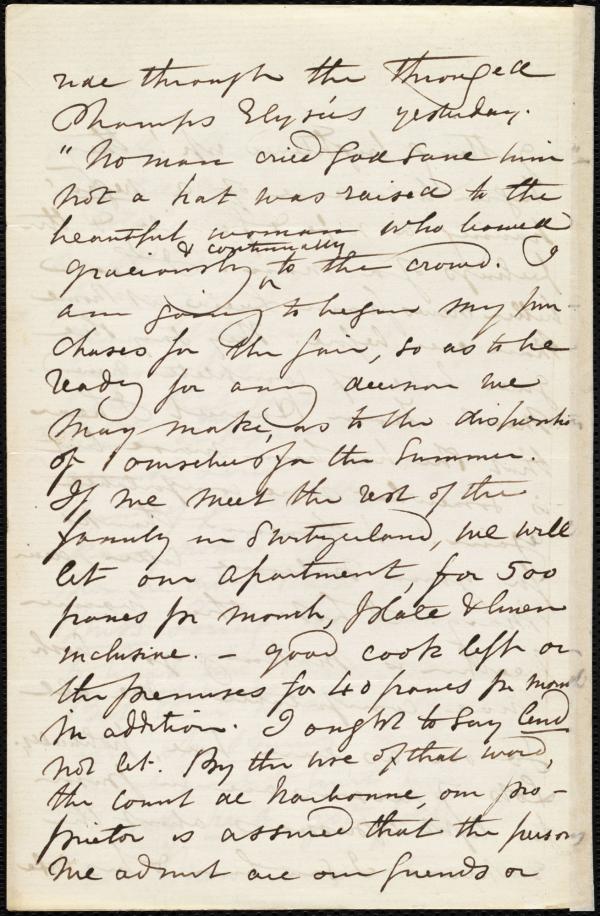 ride through the thronged
Champs Elysées yesterday.
"No man cried God save him"
not a hat was raised to the
beautiful woman who bowed
& continually
graciously ^ to the crowd. I
am going to begin my pur-
chases for the fair, so as to be
ready for any decision we
may make, as to the disposition
of ourselves for the Summer.
If we meet the rest of the
family in Switzerland, we will
let our apartment, for 500
francs pr month, plate & linen
inclusive. - good cook left on
the premises for 40 francs pr month
in addition. I ought to say lend
not let. By the use of that word,
the Count de Narbonne, our pro-
prietor is assured that the persons
we admit are our friends or